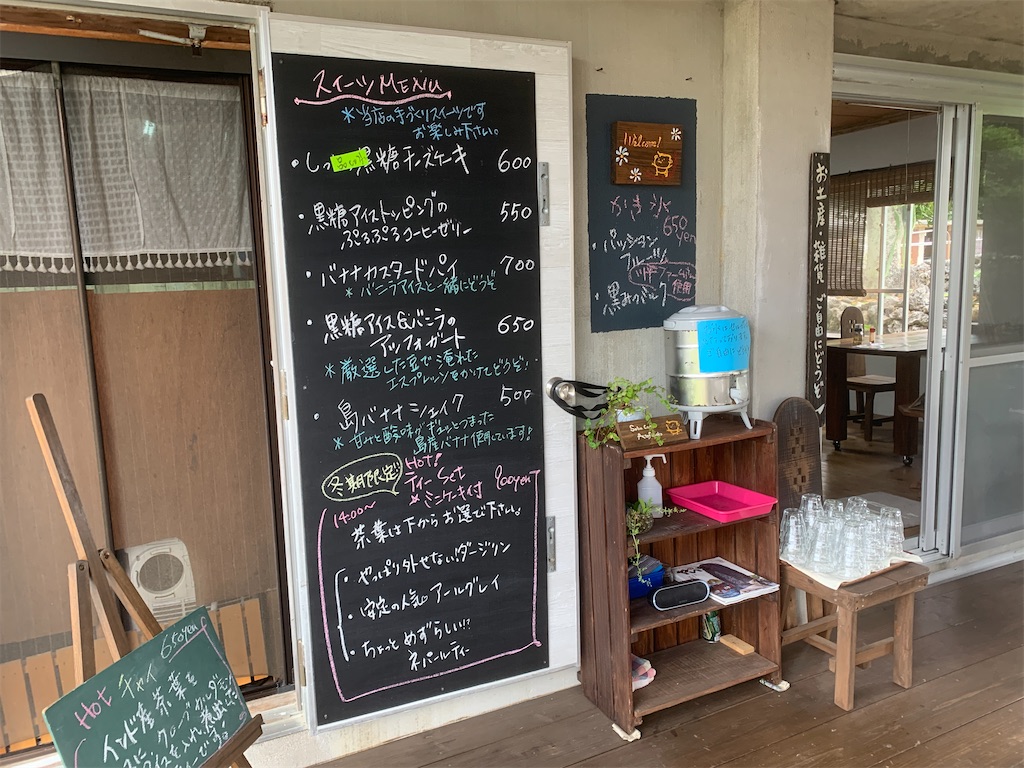 スイーツMENU
*当店の手づくりスイーツです
お楽しみ下さい。
・しっ 黒糖チーズケーキ 600
・黒糖アイストッピングの
ぷるぷるコーヒーゼリー 550
・バナナカスタードパイ 700
*バニラアイスと一緒にどうぞ
・黒糖アイス&バニラの
アッフォガート 650
*厳選した豆で淹れた
エスプレッソをかけてどうぞ!
・島バナナシェイク 500
*甘さと酸味がギュッとつまった
島産バナナ使用しています!
冬期限定
HOT!
ティーSet 900yen
*ミニケーキ付
14:00〜
茶葉は下からお選び下さい。
・やっぱり外せない!ダージリン
・安定の人気。アールグレイ
・ちょっとめずらしい!?
ネパールティー
Welcome!
かき氷
650
yen
・パッション
フルーツ
使用
・黒みつミルク
お土産・雑貨 ご自由にどうぞ
HOT チャイ 650yen
インド産茶葉を